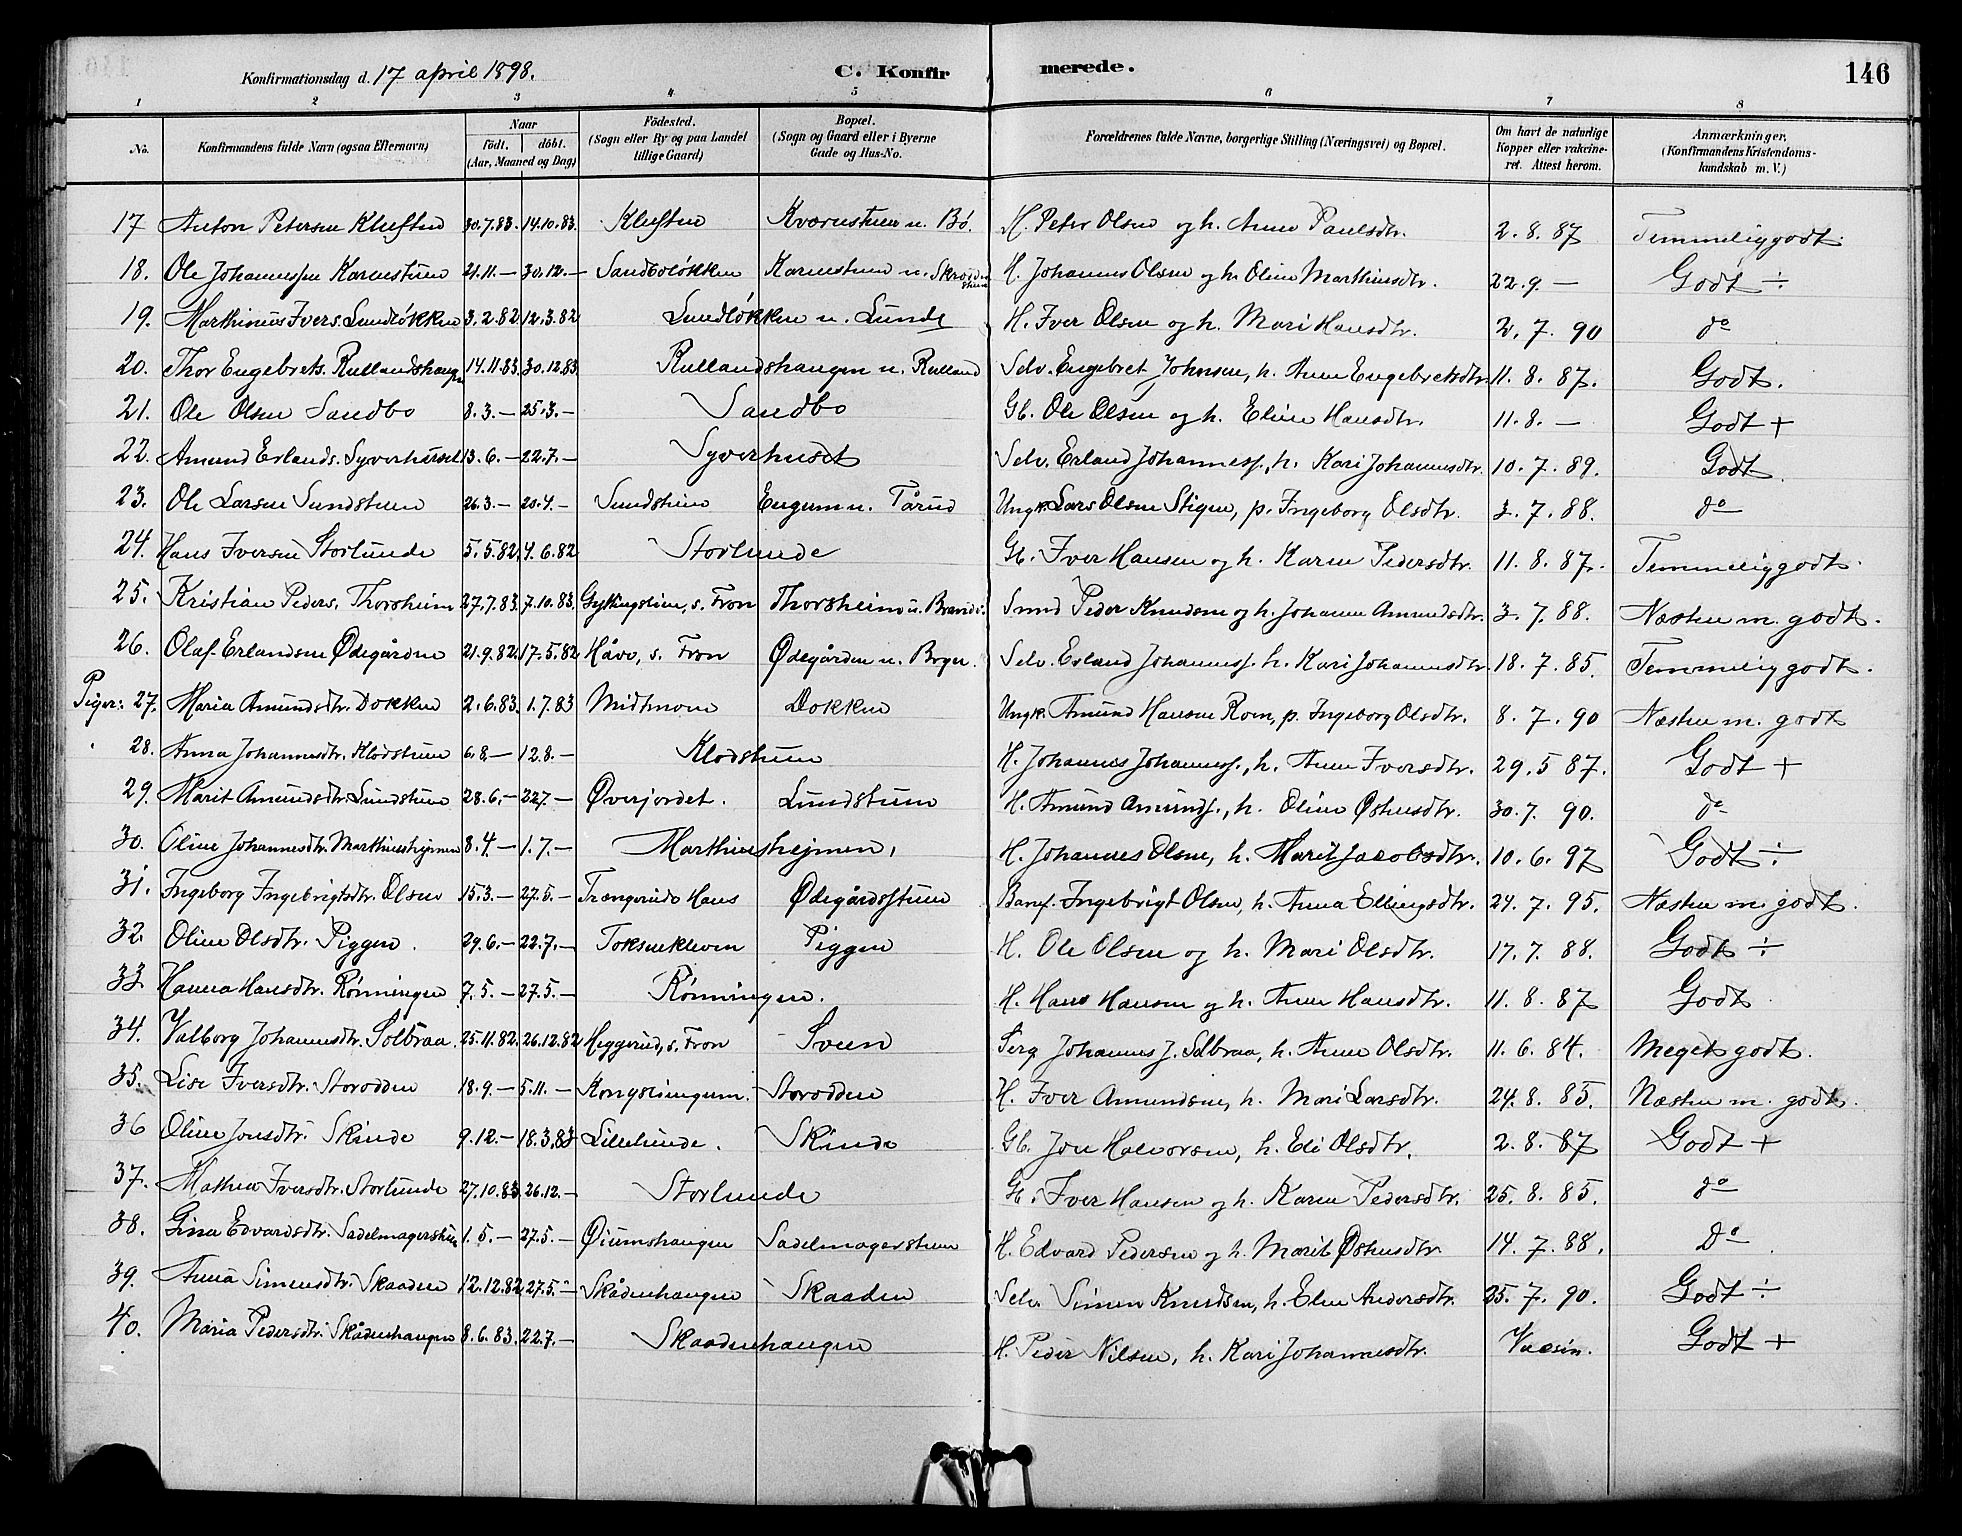 Konfirmationsdag d. 17 april 1898. C. Konfirmerede. 146
1 2 3 4 5 6 7 8
No. Konfirmandens fulde Navn (ogsaa Efternavn) Naar født. døbt. (Aar, Maaned og Dag) Fødested. (Sogn eller By og paa Landet tillige Gaard) Bopæl. (Sogn og Gaard eller i Byerne Gade og Hus-No. Forældrenes fulde Navne, borgerlige Stilling (Næringsvei) og Bopæl. Om havt de naturlige Kopper eller vakcineret. Attest herom. Anmærkninger, (Konfirmandens Kristendomskundskab m. V.)
17 Anton Petersen Kluften 30.7.83. 14.10.83. Kluften Kværnstuen u. Bø. H. Peter Olsen og h. Anne Paulsdtr. 2.8.87 Temmelig godt.
18. Ole Johannessen Karnstuen 21.11.— 30.12.— Sandboløkken Karnstuen u. H. Johannes Olsen og h. Oline Marthinsdtr. 22.9.— Godt ÷
19. Marthinus Ivers. Lundløkken 3.2.82 12.3.82 Lundløkken u. Lunde H. Iver Olsen og h. Mari Hansdtr. 2.7.90 do
20. Thor Engebrets. Rullandshaugen 14.11.83. 30.12.83 Rullandshaugen u. Rulland Selv. Engebret Johnsen, h. Anne Engebretsdtr. 11.8.87. Godt.
21. Ole Olsen Sandbo 8.3.— 25.3.— Sandbo Gb. Ole Olsen og h. Eline Hansdtr. 11.8.— Godt +
22. Amund Erlands. Syverhuset 13.6.— 22.7.— Syverhuset Selv. Erland Johanness., h. Kari Johannesdtr. 10.7.89. Godt.
23. Ole Larsen Sundstuen 26.3.— 20.4.— Sundstuen Engum u. Tårud Ungk. Lars Olsen Stigen, p. Ingeborg Olsdtr. 3.7.88. do
24. Hans Iversen Storlunde 5.5.82. 4.6.82 Storlunde Gb. Iver Hansen og h. Karen Pedersdtr. 11.8.87. Temmelig godt.
25. Kristian Peders. Thorsheim 27.7.83. 7.10.83. s. Fron Thorsheim u. Smed Peder Knudsen og h. Johanne Amundsdtr. 3.7.88. Næsten m. godt.
26. Olaf Erlandsen Ødegården 21.9.82. 17.5.82 Håve, s. Fron Ødegården u. Selv. Erland Johanness. h. Kari Johannesdtr. 18.7.85. Temmelig godt.
Piger: 27. Maria Amundsdtr. Dokken 2.6.83. 1.7.83 Midtmoen Dokken Ungk. Amund Hansen Rom, p. Ingeborg Olsdtr. 8.7.90 Næsten m. godt
28. Anna Johannesdtr. Klodstuen 6.8.— 12.8.— Klodstuen H. Johannes Johanness., h. Anne Iversdtr. 29.5 87. Godt +
29. Marit Amundsdtr. Lundstuen 28.6.— 22.7.— Øverjordet. Lundstuen H. Amund Amunds., h. Oline Østensdtr. 30.7. 90. do
30. Oline Johannesdtr. Marthinshejmen 8.4.— 1.7.— Marthinshejmen, H. Johannes Olsen, h. Marit Jacobsdtr. 10.6.97 Godt ÷
31. Ingeborg Ingebrigtsdtr. Olsen 15.3.— 27.5.— Hans Ødegårdsstuen Ingebrigt Olsen, h. Anna Ellingsdtr. 24.7.95. Næsten m. godt.
32. Oline Olsdtr. Piggen. 29.6.— 22.7.— Tokseskleven Piggen H. Ole Olsen og h. Mari Olsdtr. 17.7.88. Godt ÷
33. Hanna Hansdtr. Rønningen 7.5.— 27.5.— Rønningen. H. Hans Hansen og h. Anne Hansdtr. 11.8.87 Godt
34. Valborg Johannesdtr. Solbraa. 25.11.82. 26.12.82 Heggerud, s. Fron Sveen Serg Johannes J. Solbraa, h. Anne Olsdtr. 11.6.84. Meget godt.
35. Lise Iversdtr. Storodden 18.9.— 5.11.— Kongsliengum. Storodden H. Iver Amundsen, h. Mari Larsdtr. 24.8.85. Næsten m. godt.
36 Oline Jonsdtr. Skinde 9.12.— 18.3.83 Lillelunde. Skinde Gb. Jon Halvorsen, h. Eli Olsdtr. 2.8.87 Godt +
37. Mathea Iversdtr. Storlunde 27.10.83 26.12.— Storlunde Gb. Iver Hansen og h. Karen Pedersdtr. 25.8.85. do
38. Gina Edvardsdtr. Sadelmagerstuen 1.5.— 27.5.— Øiumshaugen Sadelmagerstuen H. Edvard Pedersen og h. Marit Østensdtr. 14.7.88. Do
39. Anna Simensdtr. Skaaden 12.12.82 27.5.— Skådenhaugen Skaaden Selv. Simen Knudsen, h. Eline Andersdtr. 25.7.90. Godt ÷
40. Maria Pedersdtr. Skådenhaugen 8.6.83. 22.7.— Skaadenhaugen H. Peder Nilsen, h. Kari Johannesdtr. Vaccin. Godt +